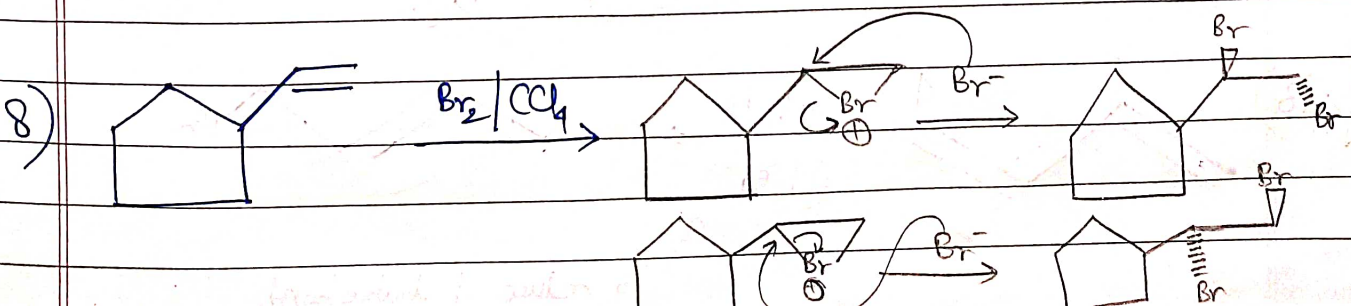 Br
8) Br₂/CCl₄ Br ⊕ Br⁻ Br
Br
Br ⊕ Br⁻ Br